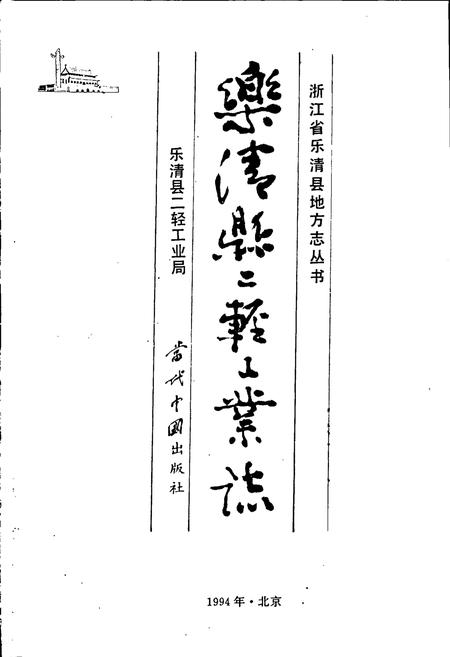 浙江省乐清县地方志丛书
樂清縣二輕工業誌
乐清县二轻工业局
當代中國出版社
1994年·北京